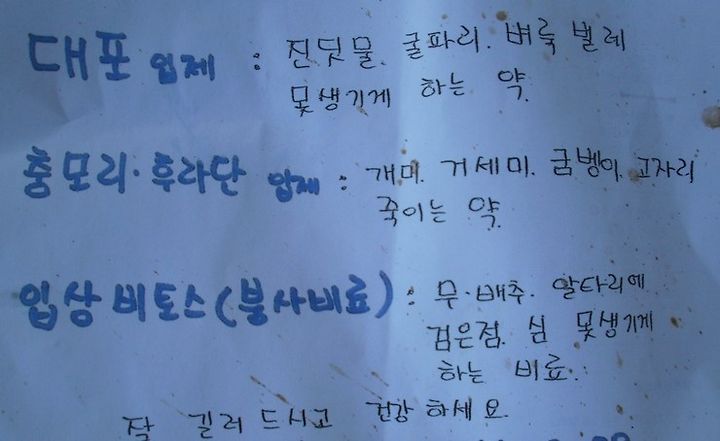 대포 입제 : 진딧물. 굴파리. 벼룩 벌레
못생기게 하는 약.
충모리·후라단 입제 : 개미. 거세미. 굼벵이. 고자리
죽이는 약.
입상 비토스(붕사비료) : 무·배추. 알타리에
검은점. 심 못생기게
하는 비료.
잘 길러 드시고 건강 하세요.